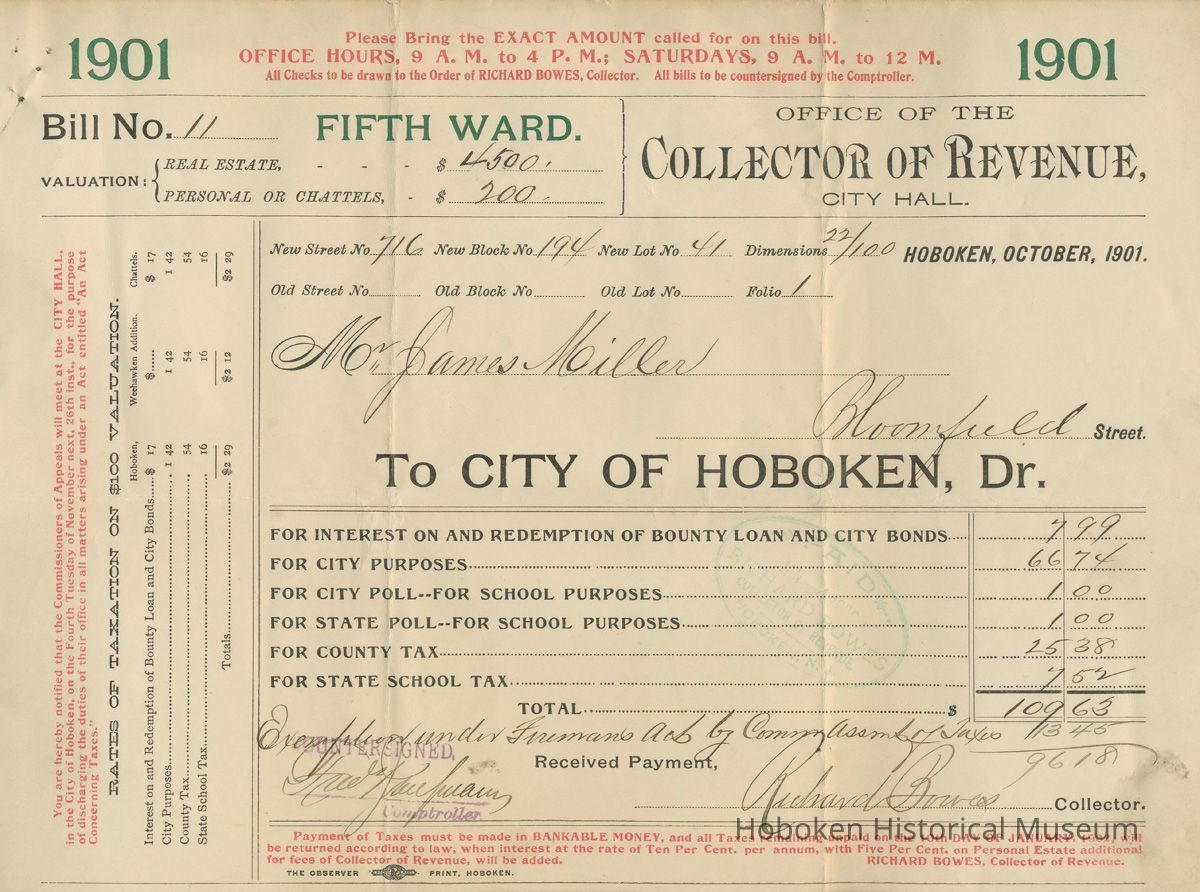 1901
Please Bring the EXACT AMOUNT called for on this bill.
OFFICE HOURS, 9 A. M. to 4 P. M.; SATURDAYS, 9 A. M. to 12 M.
All Checks to be drawn to the Order of RICHARD BOWES, Collector. All bills to be countersigned by the Comptroller.
1901
Bill No. 11 FIFTH WARD.
VALUATION: REAL ESTATE, - - - $ 4500.
PERSONAL OR CHATTELS, - $ 200.
OFFICE OF THE
COLLECTOR OF REVENUE,
CITY HALL.
You are hereby notified that the Commissioners of Appeals will meet at the CITY HALL,
in the City of Hoboken, on the Fourth Tuesday of November next, 26th inst., for the purpose
of discharging the duties of their office in all matters arising under an Act entitled "An Act
Concerning Taxes."
RATES OF TAXATION ON $100 VALUATION.
Hoboken, Weehawken Addition. Chattels.
Interest on and Redemption of Bounty Loan and City Bonds...... $ 17 $...... $ 17
City Purposes...... 1 42 1 42 1 42
County Tax...... 54 54 54
State School Tax...... 16 16 16
Totals...... $2 29 $2 12 $2 29
New Street No. 716 New Block No. 194 New Lot No. 41 Dimensions 22/100 HOBOKEN, OCTOBER, 1901.
Old Street No. Old Block No. Old Lot No. Folio 1
Mr. James Miller
Bloomfield Street.
To CITY OF HOBOKEN, Dr.
FOR INTEREST ON AND REDEMPTION OF BOUNTY LOAN AND CITY BONDS.... 7 99
FOR CITY PURPOSES 66 74
FOR CITY POLL--FOR SCHOOL PURPOSES 1 00
FOR STATE POLL--FOR SCHOOL PURPOSES 1 00
FOR COUNTY TAX 25 38
FOR STATE SCHOOL TAX 7 52
TOTAL $ 109 63
PAID
RICHARD BOWES
Exemption under Firemans Act by Comm Assmt of Taxes 13 45
96 18
COUNTERSIGNED,
Comptroller
Received Payment,
Richard Bowes Collector.
Hoboken Historical Museum
Payment of Taxes must be made in BANKABLE MONEY, and all Taxes remaining unpaid on the DAY OF JANUARY, will
be returned according to law, when interest at the rate of Ten Per Cent. per annum, with Five Per Cent. on Personal Estate additional
for fees of Collector of Revenue, will be added. RICHARD BOWES, Collector of Revenue.
THE OBSERVER PRINT, HOBOKEN.